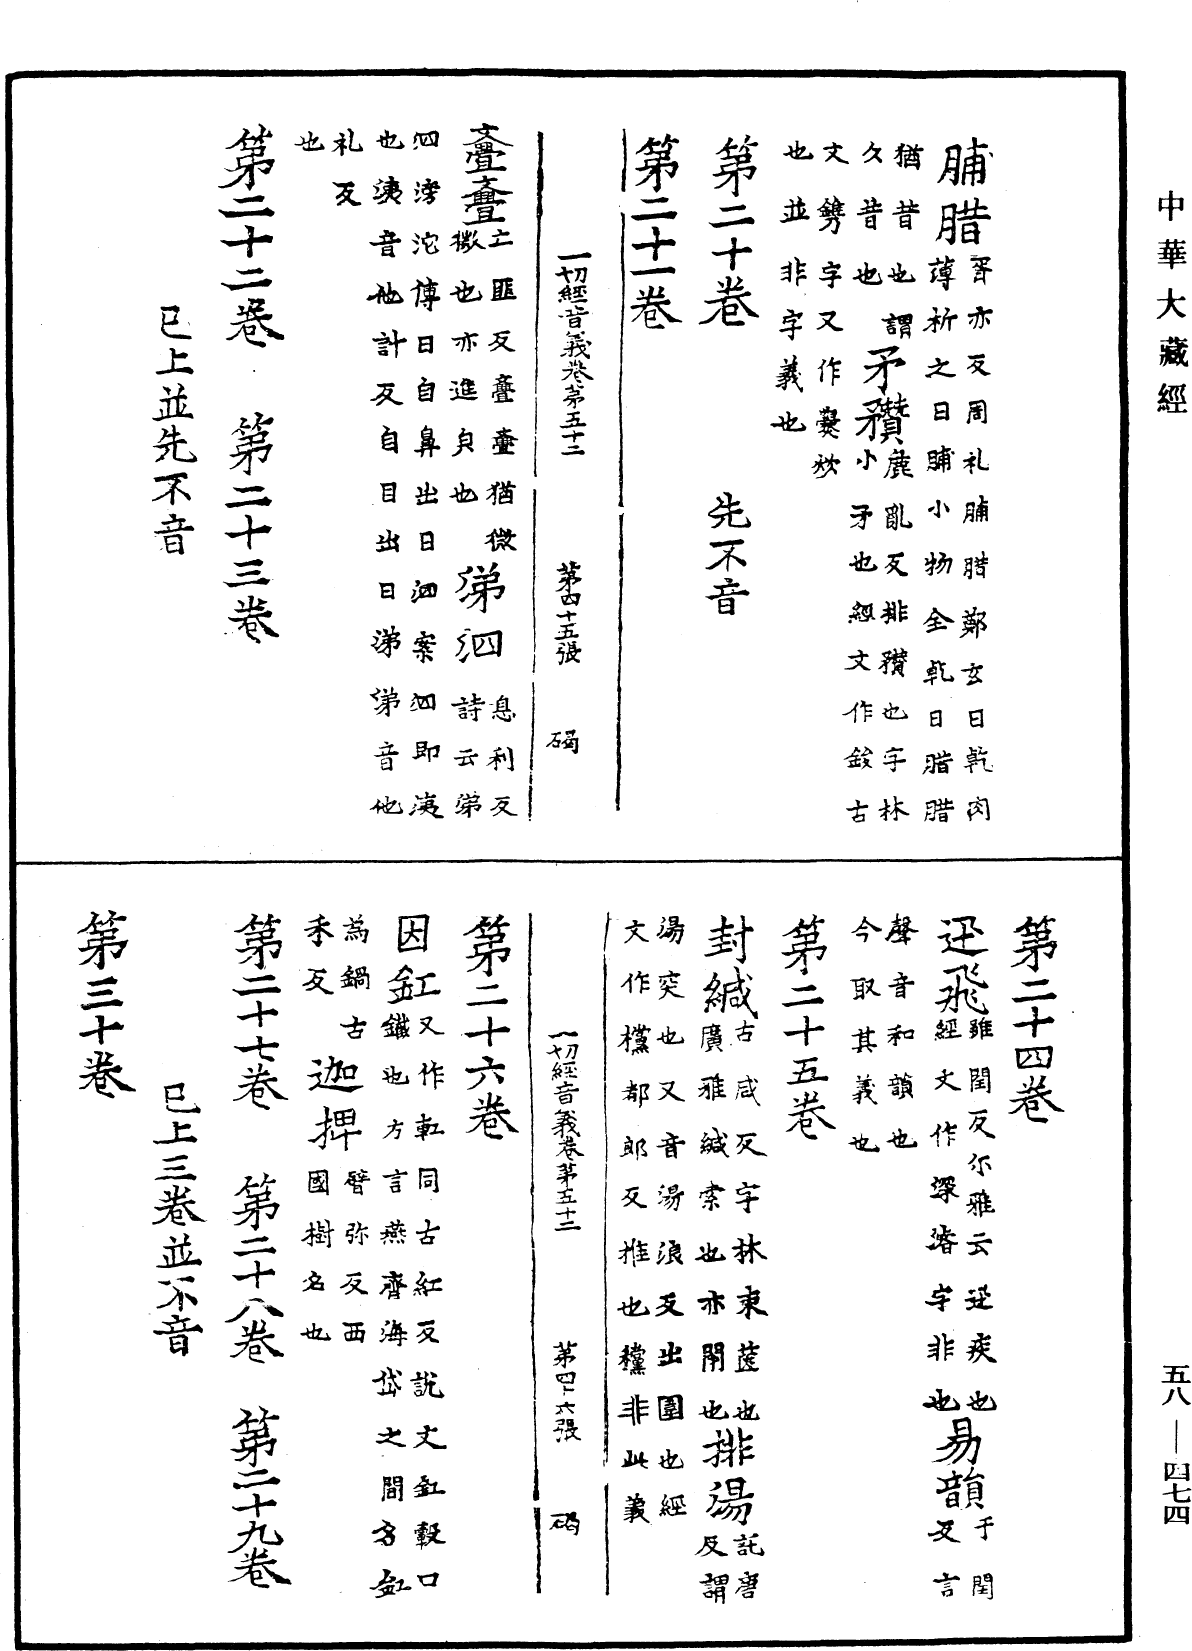 中華大藏經
脯腊
胥亦反周礼脯腊鄭玄曰乾肉
薄析之曰脯小物全乾曰腊腊
猶昔也謂
久昔也
矛穳
麁亂反排穳也字林
小矛也經文作鋑古
文鎸字又作爨欻
也並非字義也
第二十卷 先不音
第二十一卷
一切經音義卷第五十二 第四十五張 碣
亹亹
亡匪反亹亹猶微
微也亦進皃也
涕泗
息利反
詩云涕
泗滂沱傳曰自鼻出曰泗案泗即洟
也洟音他計反自目出曰涕涕音他
礼反
也
第二十二卷 第二十三卷
已上並先不音
第二十四卷
迅飛
雖閏反尒雅云迅疾也
經文作深濬字非也
易韻
于閏
反言
聲音和韻也
今取其義也
第二十五卷
封緘
古咸反字林束篋也
廣雅緘索也亦閉也
排湯
託唐
反謂
湯突也又音湯浪反出圕也經
文作欓都郎反推也欓非此義
一切經音義卷第五十二 第四十六張 碣
第二十六卷
因釭
又作軖同古紅反說文釭轂口
鐵也方言燕齊海岱之間方釭
為鍋古
禾反
迦捭
臂弥反西
國樹名也
第二十七卷 第二十八卷 第二十九卷
已上三卷並不音
第三十卷
五八—四七四